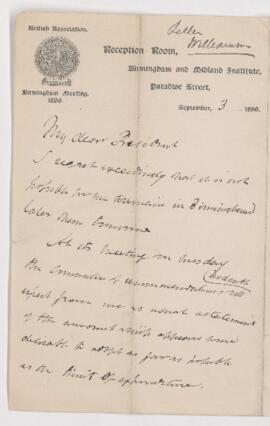 British Association.
Birmingham Meeting.
1886.
Letter
Williamson
Reception Room,
Birmingham and Midland Institute,
Paradise Street,
September, 3 1886.
My dear President
I regret exceedingly that it is not
possible for me to remain in Birmingham
later than tomorrow
At its meeting on Tuesday
the Committee of recommendations will
expect from me as usual a statement
of the amount which appears
desirable to adopt as far as possible
as the limit of expenditure.